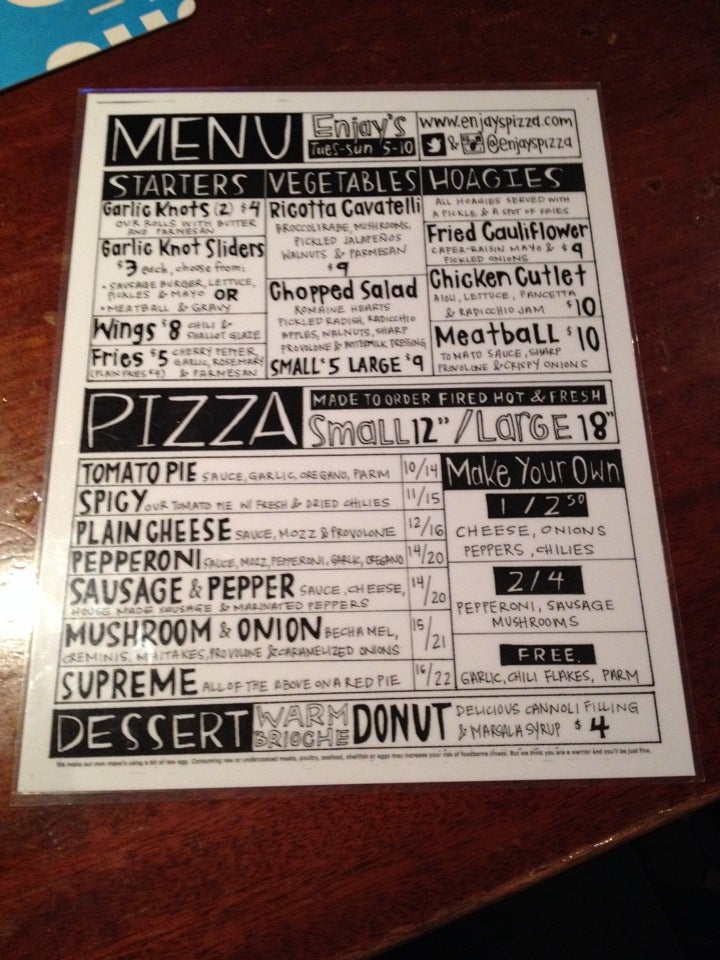 MENU
Enjay's
Tues-Sun 5-10
www.enjayspizza.com
& @enjayspizza
STARTERS
Garlic Knots (2) $4
OUR ROLLS WITH BUTTER
AND PARMESAN
Garlic Knot Sliders
$3 each, choose from:
• SAUSAGE BURGER, LETTUCE,
PICKLES & MAYO OR
• MEATBALL & GRAVY
Wings $8 CHILI &
SHALLOT GLAZE
Fries $5 CHERRY PEPPER,
GARLIC, ROSEMARY
(PLAIN FRIES $4) & PARMESAN
VEGETABLES
Ricotta Cavatelli
BROCCOLI RABE, MUSHROOMS,
PICKLED JALAPEÑOS
WALNUTS & PARMESAN
$9
Chopped Salad
ROMAINE HEARTS
PICKLED RADISH, RADICCHIO
APPLES, WALNUTS, SHARP
PROVOLONE & BUTTERMILK DRESSING
SMALL $5 LARGE $9
HOAGIES
ALL HOAGIES SERVED WITH
A PICKLE & A SPOT OF FRIES
Fried Cauliflower
CAPER-RAISIN MAYO & $9
PICKLED ONIONS
Chicken Cutlet
AIOLI, LETTUCE, PANCETTA
& RADICCHIO JAM $10
Meatball $10
TOMATO SAUCE, SHARP
PROVOLONE & CRISPY ONIONS
PIZZA
MADE TO ORDER FIRED HOT & FRESH
Small 12" / Large 18"
TOMATO PIE SAUCE, GARLIC, OREGANO, PARM 10/14
SPICY OUR TOMATO PIE W/ FRESH & DRIED CHILIES 11/15
PLAIN CHEESE SAUCE, MOZZ & PROVOLONE 12/16
PEPPERONI SAUCE, MOZZ, PEPPERONI, GARLIC, OREGANO 14/20
SAUSAGE & PEPPER SAUCE, CHEESE, 14/20
HOUSE MADE SAUSAGE & MARINATED PEPPERS
MUSHROOM & ONION BECHAMEL, 15/21
CREMINIS, SHIITAKES, PROVOLONE & CARAMELIZED ONIONS
SUPREME ALL OF THE ABOVE ON A RED PIE 16/22
Make Your Own
1/2.50
CHEESE, ONIONS
PEPPERS, CHILIES
2/4
PEPPERONI, SAUSAGE
MUSHROOMS
FREE.
GARLIC, CHILI FLAKES, PARM
DESSERT
WARM
BRIOCHE
DONUT
DELICIOUS CANNOLI FILLING
& MARSALA SYRUP $4
We make our own mayo's using a bit of raw egg. Consuming raw or undercooked meats, poultry, seafood, shellfish or eggs may increase your risk of foodborne illness. But we think you are a warrior and you'll be just fine.